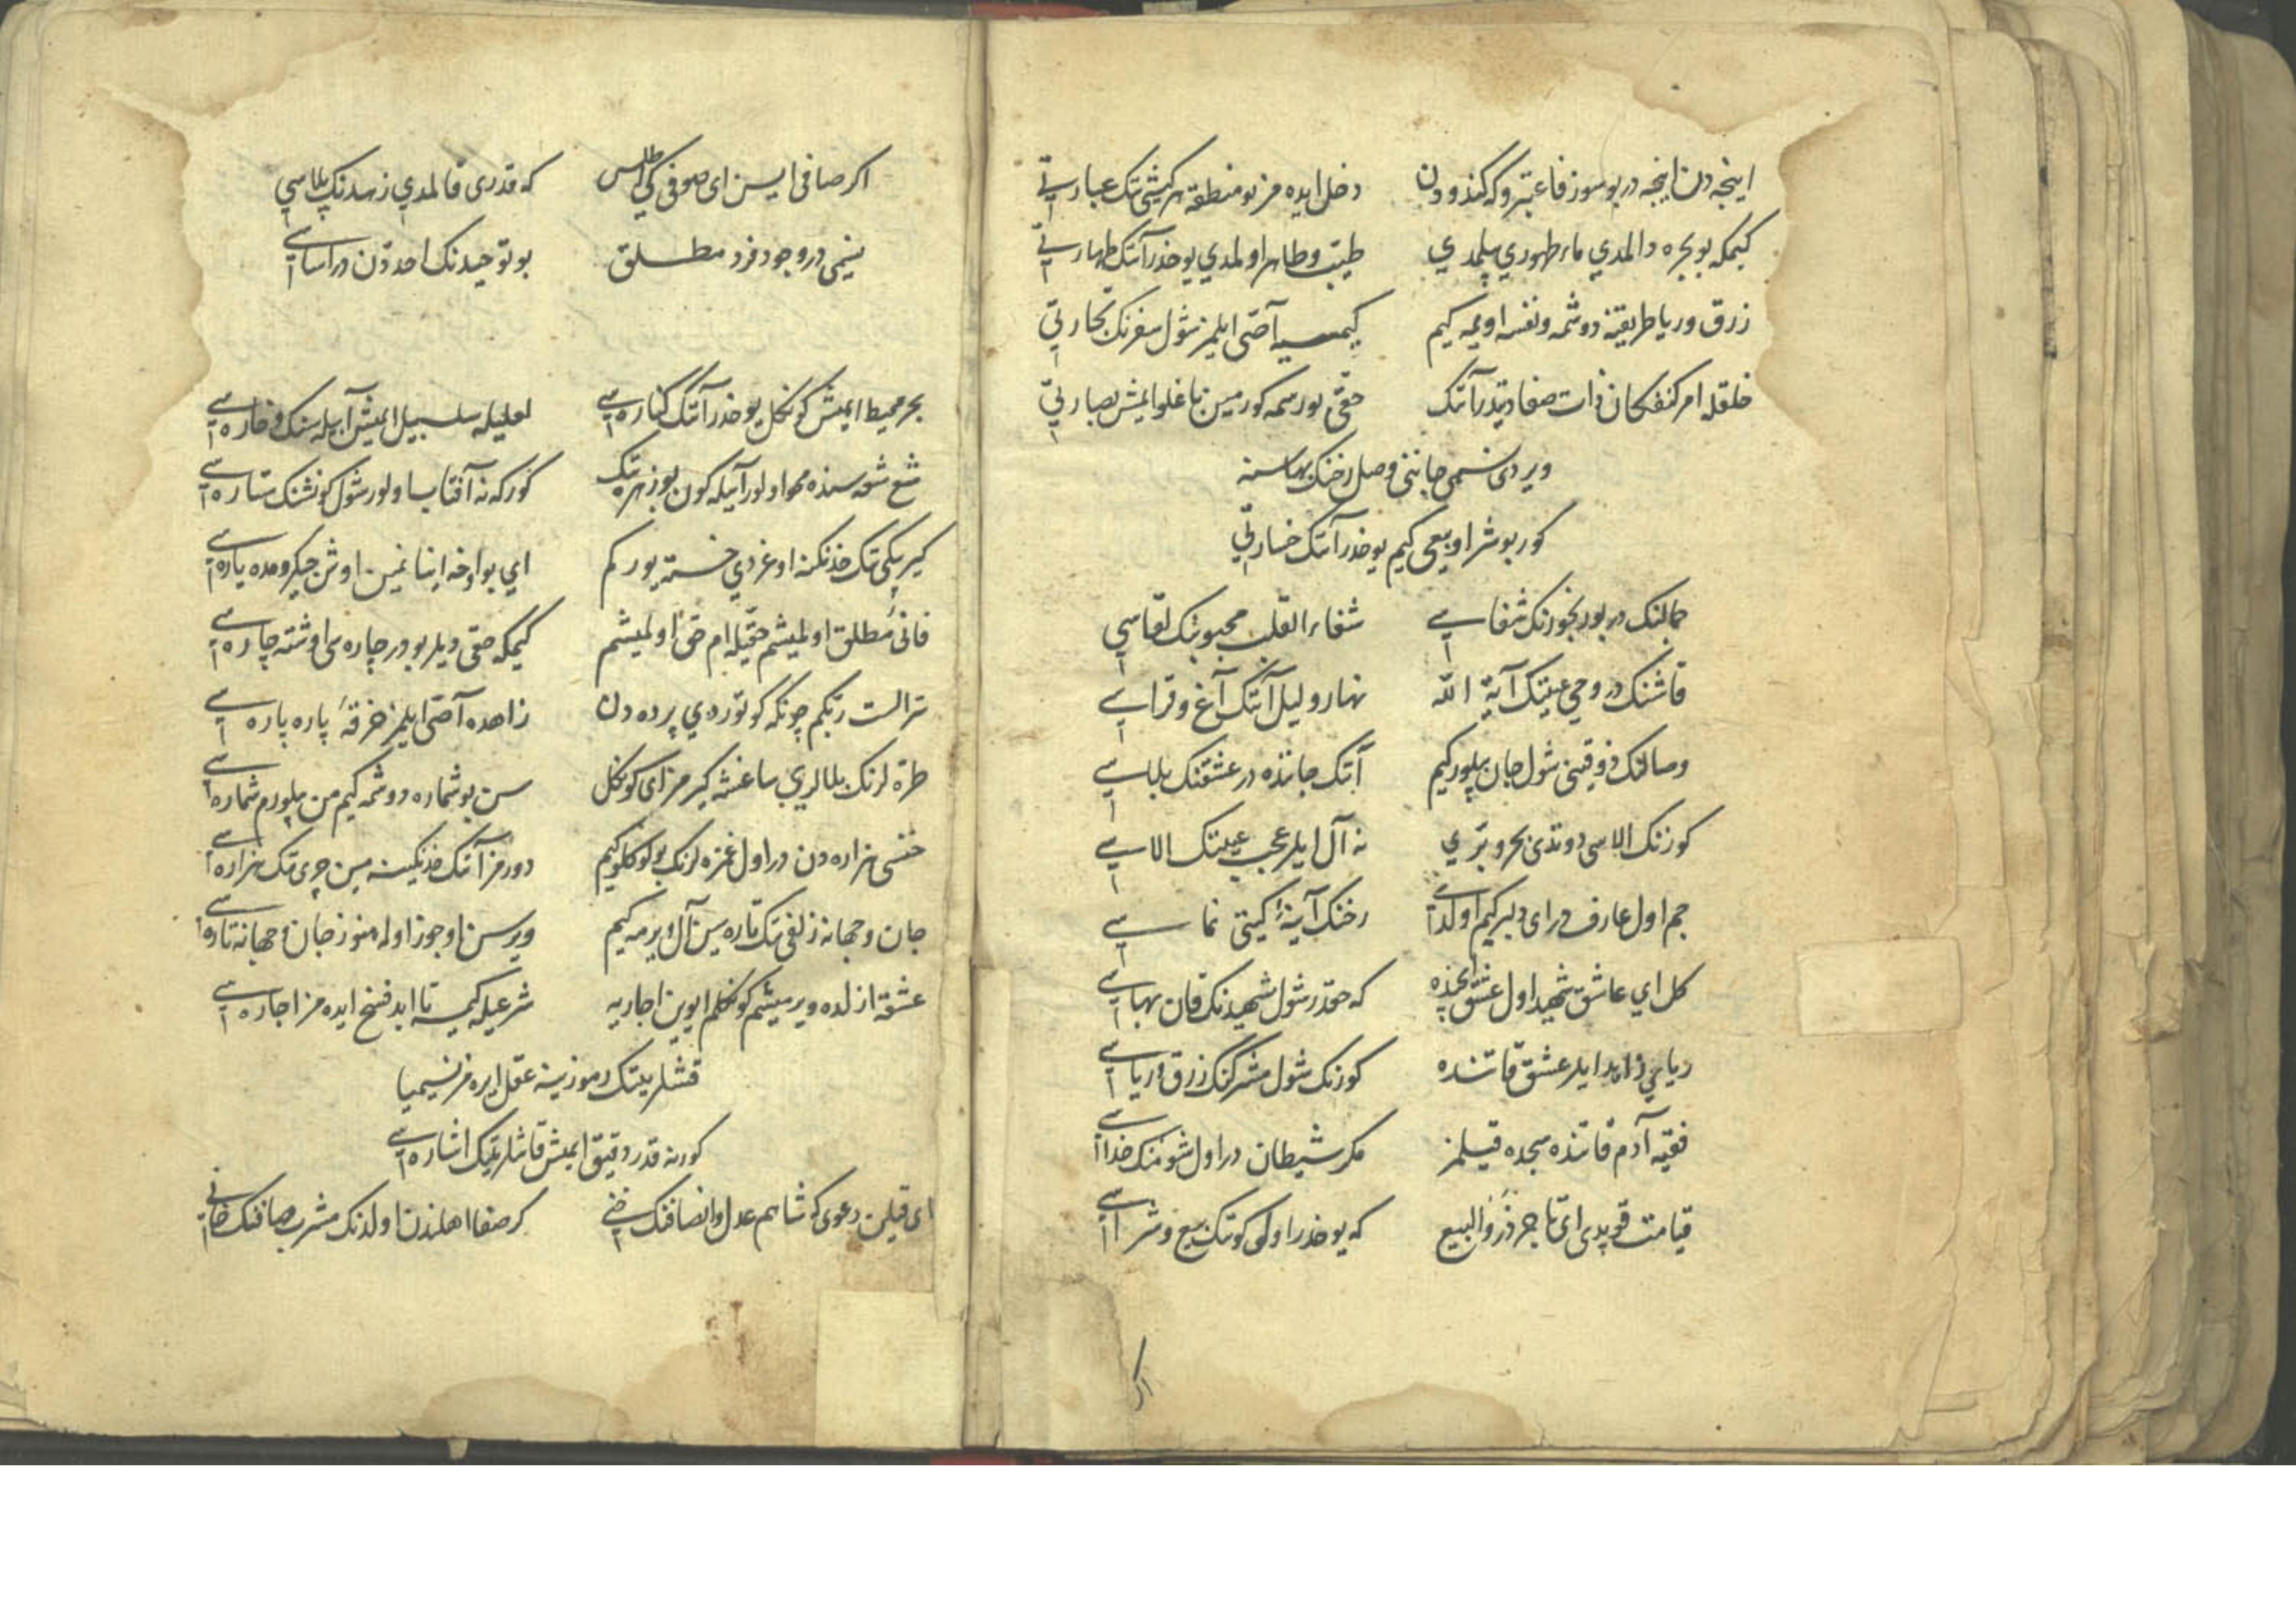 اینجه دن اینجه در بو سوز فاعتبروا که کندودن دخل ایده مز بو منطقه هر کیشی نک عبارتی
کیمکه بو بحره دالمدی ماء طهوری بیلمدی طیب و طاهر اولمدی یوخدر آنک طهارتی
زرق و ریا طریقنه دوشمه و نفسه اویمه کیم کیمسیه آصی ایلمز شول سفرنک تجارتی
خلقله امر کنفکان ذات صفاتیدر آنک حقی بو رسمه کورمین باغلو ایمش بصارتی
ویردی نسیمی جاننی وصل رخنک بهاسنه
کور بو شراو بیعی کیم یوخدر آنک خسارتی
جمالنک در بو رنجورنک شفاسی شفاء القلب محبوبنک لقاسی
قاشنک در وحی عینک آیة الله نهار و لیل آنک آغ و قراسی
وصالنک ذوقینی شول جان بیلور کیم آنک جاننده در عشقنک بلاسی
کوزنک الاسی دوتدی بحر و بری نه آل ایلر عجب عینک الاسی
جم اول عارف در ای دلبر کیم اولدی رخنک آینهٔ کیتی نماسی
کل ای عاشق شهید اول عشق ایچنده که حقدر شول شهیدنک قان بهاسی
ریایی زاهد ایلر عشق قاتنده کورنک شول مشرکنک زرق و ریاسی
فقیه آدم قاتنده سجده قیلمز مکر شیطان در اول شومنک خداسی
قیامت قوپدی ای تاجر ذروا البیع که یوخدر اول کونک بیع و شراسی
اکر
اکر صافی ایسن ای صوفی کی اطلس که قدری قالمدی زهدنک پلاسی
نسیمی در وجود فرد مطلق بو توحیدنک احددن در اساسی
بحر محیط ایمش کونکل یوخدر آنک کناره سی لعلیله سلسبیل ایمش آبیله سنک و خاره سی
شعشعه سنده محو اولور آیله کون بو زهره نک کور که نه آفتاب اولور شول کونشنک ستاره سی
کیرپکی نک خدنکنه اوغردی خسته یورکم ای بو اوخه اینانمین اوش جیکرومده یاره سی
فانیٔ مطلق اولمیشم حقیله هم حق اولمیشم کیمکه حقی دیلر بودر چاره سی اوشته چاره سی
سر الست ربکم چونکه کوتوردی پرده دن زاهده آصی ایلمز خرقهٔ پاره پاره سی
طره لرنک بلالری ساغشه کیرمز ای کونکل سن بو شماره دوشمه کیم من بیلورم شماره سی
خسی هزاره دن در اول غمزه لرنک کیم دورمز آنک خدنکینه مین چری نک هزاره سی
جان و جهانه زلفی نک تاره سین آل ویرمه کیم ویرسن اوجوز اوله هنوز جان و جهانه تاره سی
عشقه ازلده ویرمیشم کونکلم ایوین اجاریه شرعیله کیمسه تا ابد فسخ ایده مز اجاره سی
قشلرینک رموزینه عقل ایره مز نسیمیا
کور نه قدر دقیق ایمش قاشلرینک اشاره سی
ای قیلن دعوی که شاهم عدل و انصافنک قنی کر صفا اهلندن اولدنک مشرب صافنک قنی